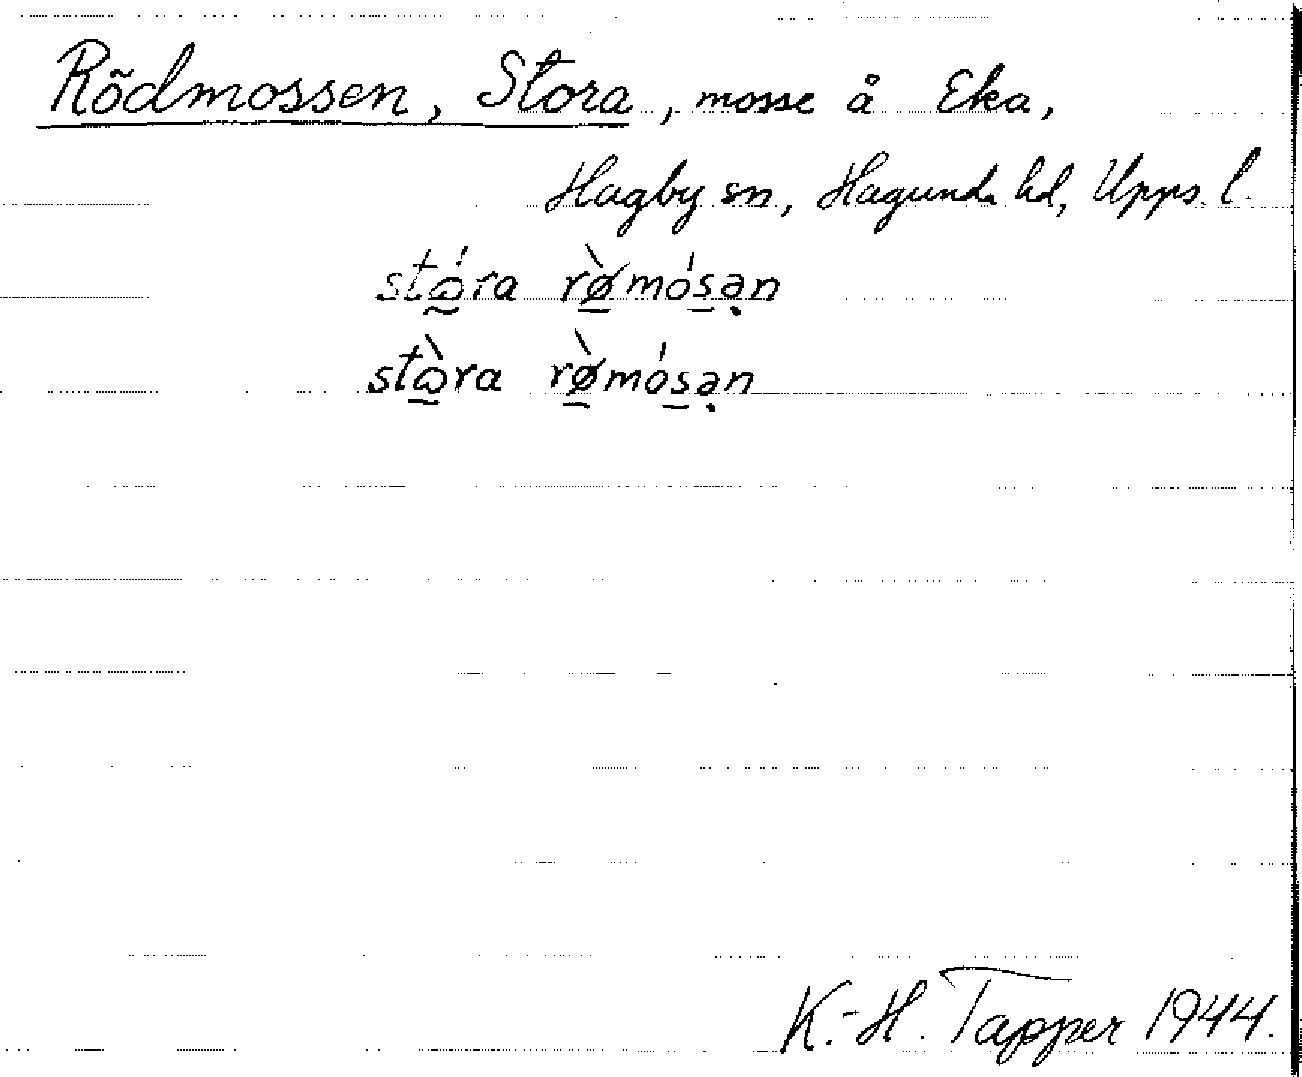 Rödmossen, Stora, mosse å Eka,
Hagby sn, Hagunda hd, Upps. l.
stɷ̰́ra rø̱̀mós̱ə̣n
stɷ̰̀ra rø̱̀mós̱ə̣n
K.-H. Tapper 1944.